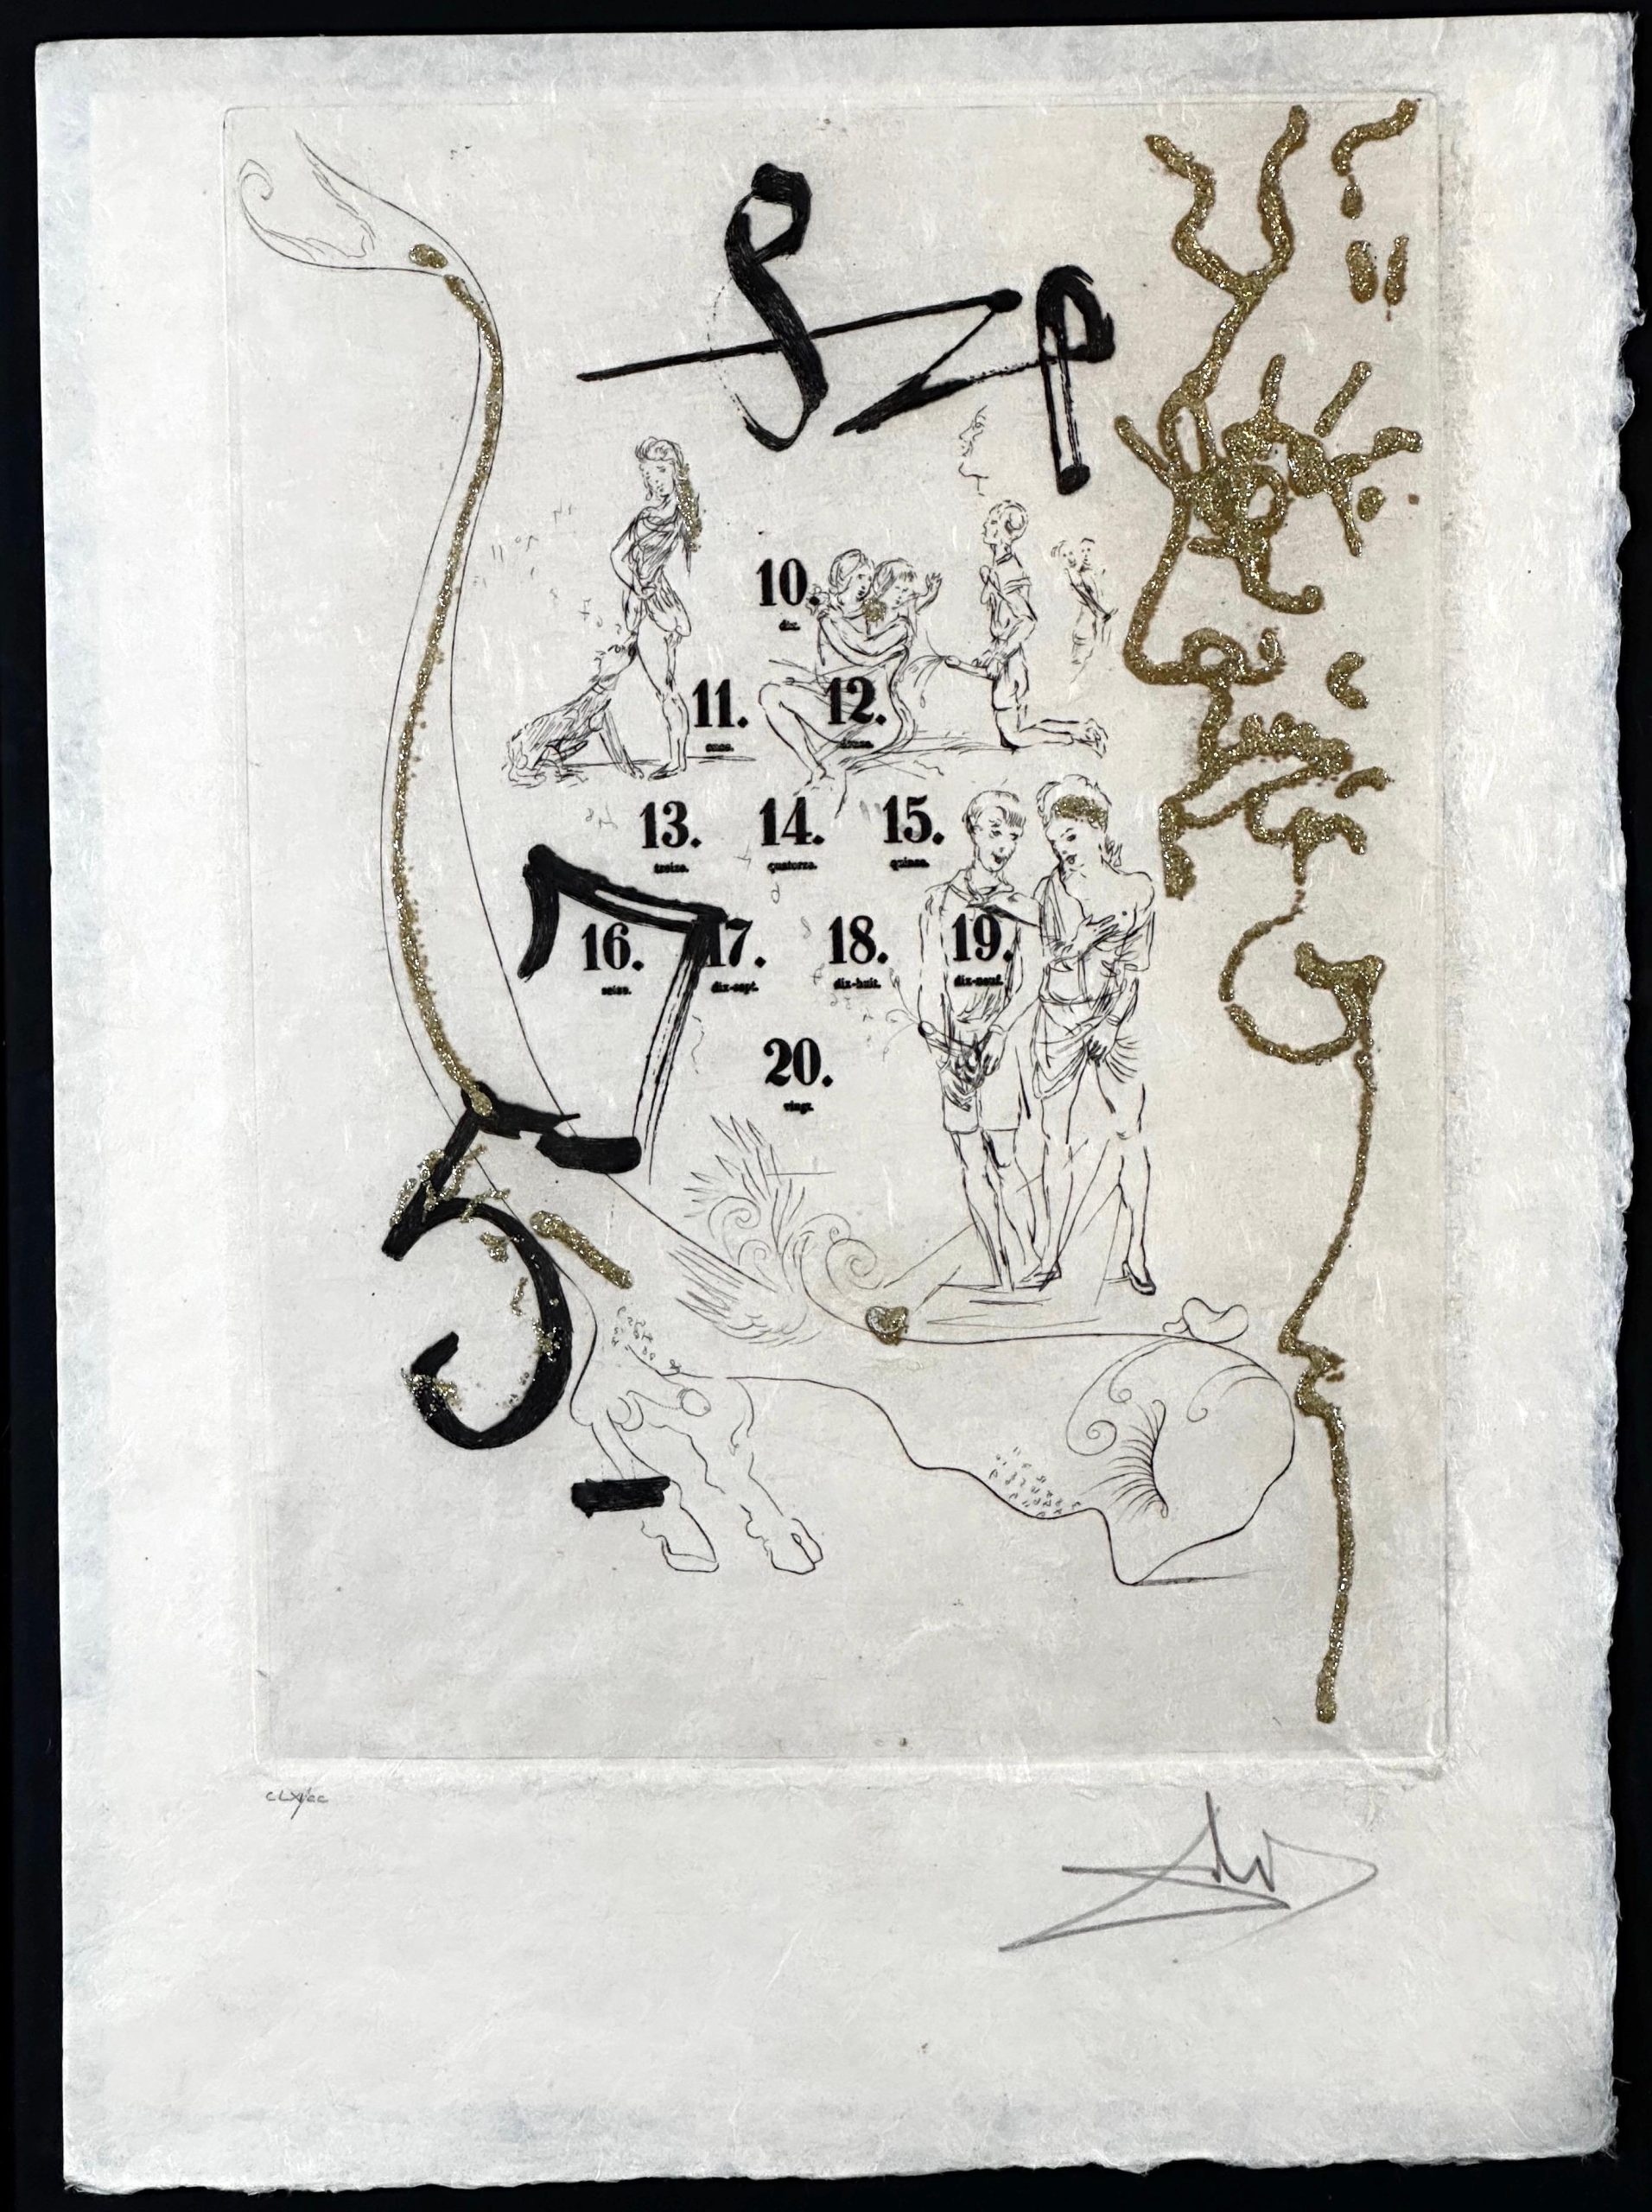 10.
dix.
11. 12.
onze. douze.
13. 14. 15.
treize. quatorze. quinze.
16. 17. 18. 19.
seize. dix-sept. dix-huit. dix-neuf.
20.
vingt.
5
CLX/CC
Dalí